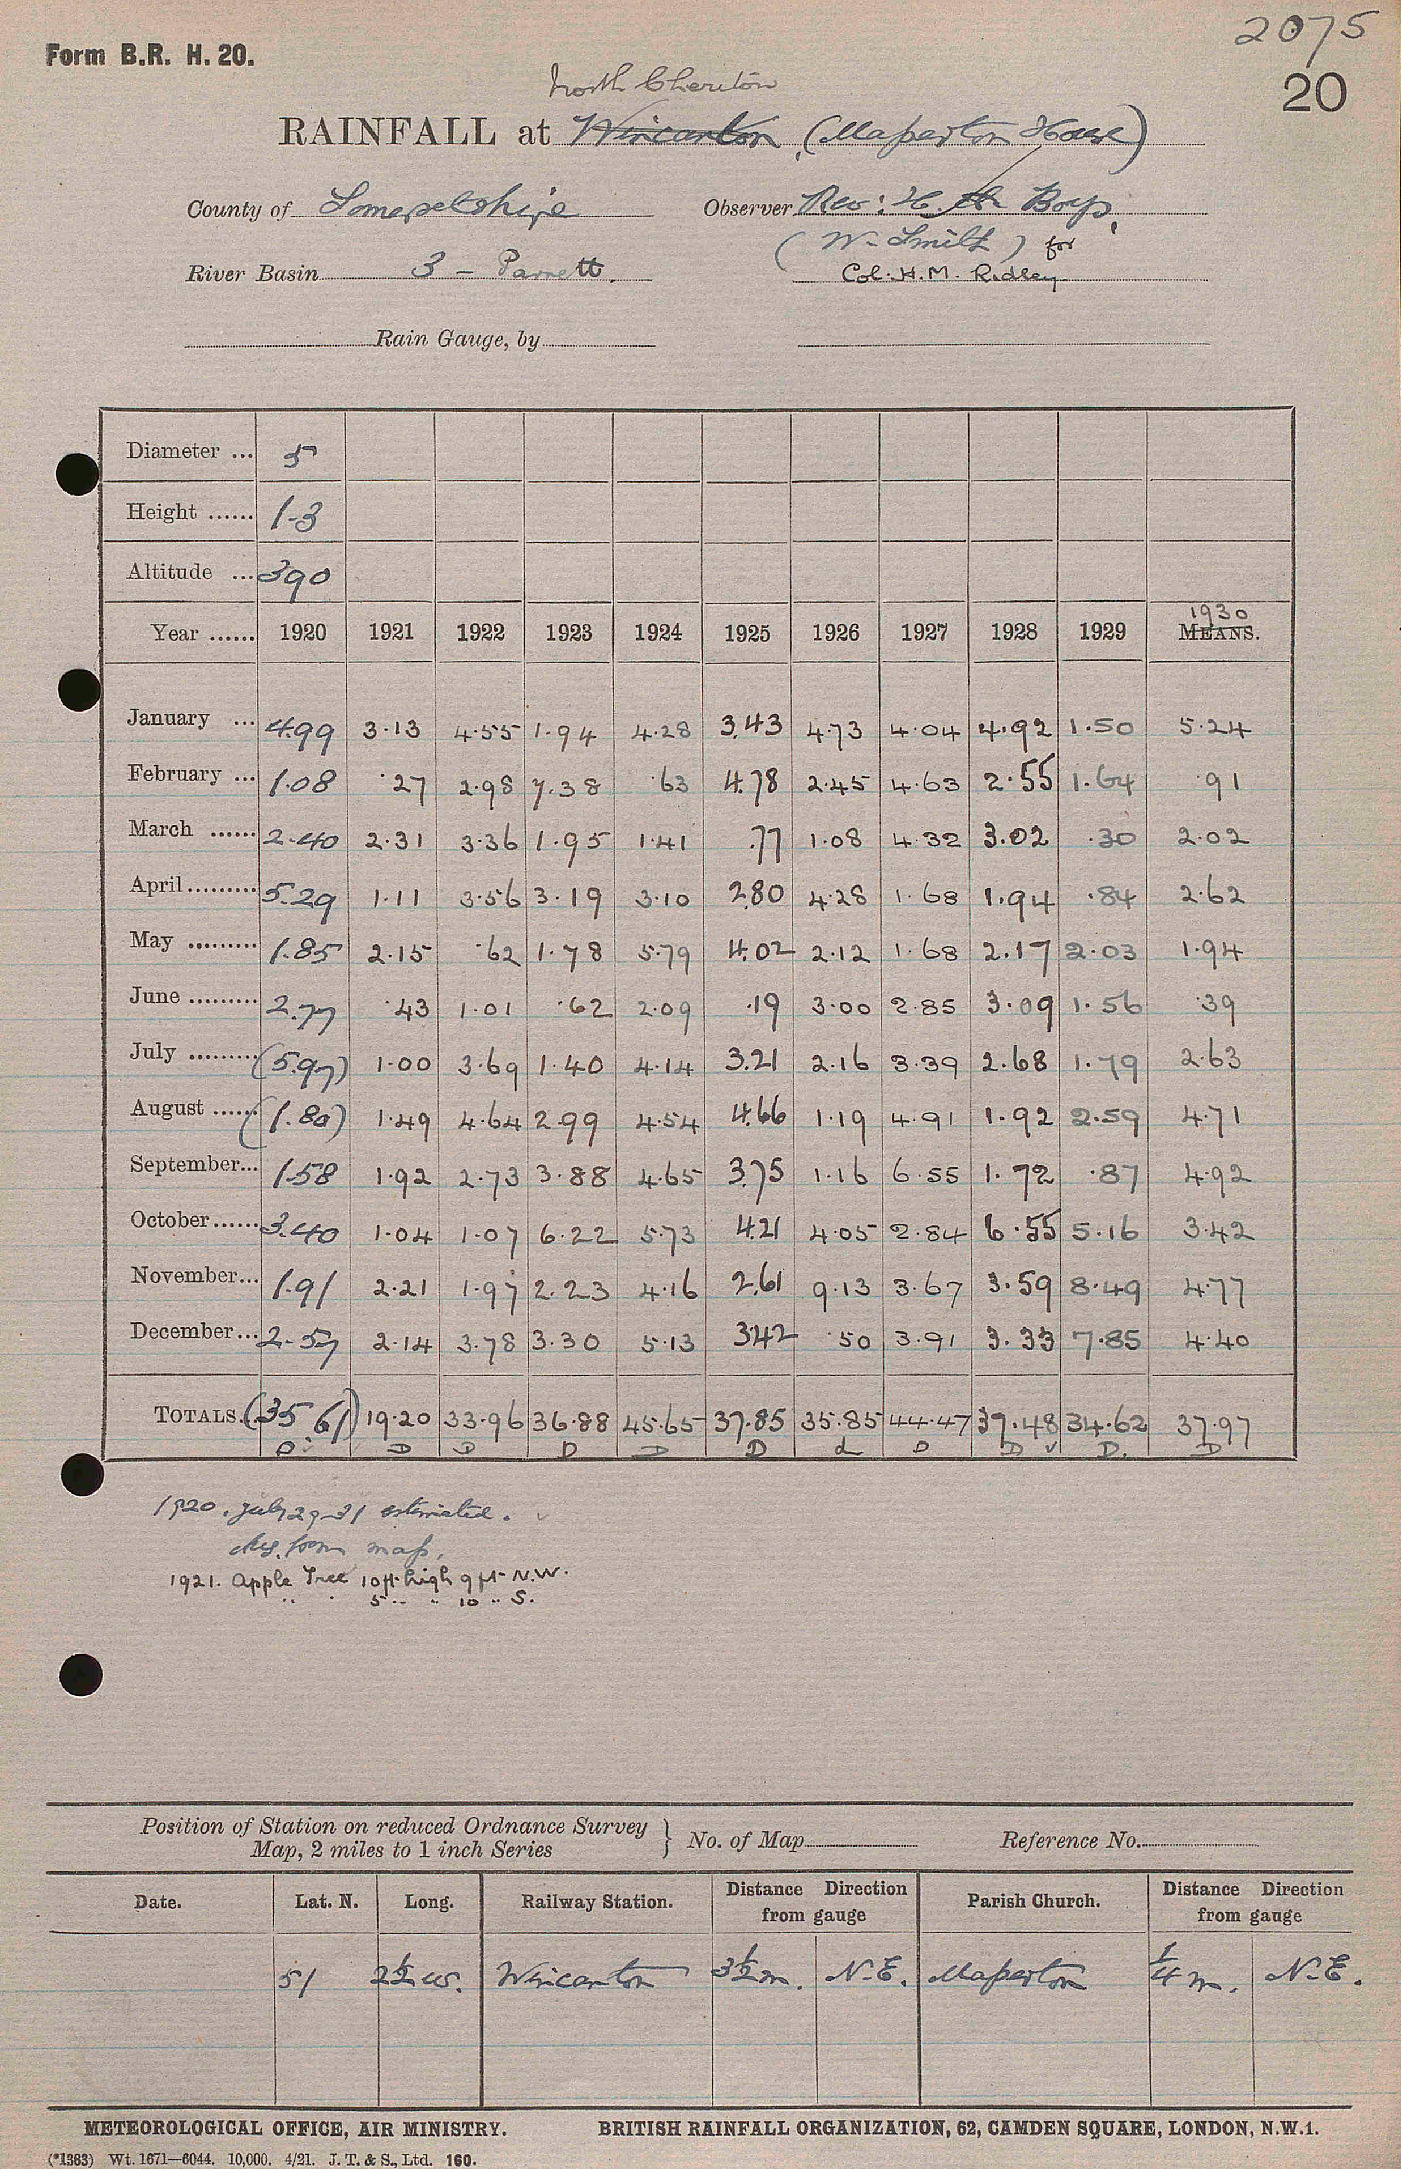 2075
Form B.R. H. 20.
20
North Cheriton
RAINFALL at Wincanton (Maperton House)
County of Somersetshire Observer Rev: H. Boys,
(W. Smith) for
River Basin 3 - Parrett. Col. H.M. Ridley
Rain Gauge, by
Diameter ... 5
Height ...... 1-3
Altitude ... 390
1930
Year ...... 1920 1921 1922 1923 1924 1925 1926 1927 1928 1929 MEANS.
January ... 4.99 3.13 4.55 1.94 4.28 3.43 4.73 4.04 4.92 1.50 5.24
February ... 1.08 .27 2.98 7.38 .63 4.78 2.45 4.63 2.55 1.64 .91
March ...... 2.40 2.31 3.36 1.95 1.41 .77 1.08 4.32 3.02 .30 2.02
April ......... 5.29 1.11 3.56 3.19 3.10 2.80 4.28 1.68 1.94 .84 2.62
May ......... 1.85 2.15 .62 1.78 5.79 4.02 2.12 1.68 2.17 2.03 1.94
June ......... 2.77 .43 1.01 .62 2.09 .19 3.00 2.85 3.09 1.56 .39
July ......... (5.97) 1.00 3.69 1.40 4.14 3.21 2.16 3.39 2.68 1.79 2.63
August ...... (1.80) 1.49 4.64 2.99 4.54 4.66 1.19 4.91 1.92 2.59 4.71
September... 1.58 1.92 2.73 3.88 4.65 3.75 1.16 6.55 1.72 .87 4.92
October...... 3.40 1.04 1.07 6.22 5.73 4.21 4.05 2.84 6.55 5.16 3.42
November... 1.91 2.21 1.97 2.23 4.16 2.61 9.13 3.67 3.59 8.49 4.77
December... 2.57 2.14 3.78 3.30 5.13 3.42 .50 3.91 3.33 7.85 4.40
TOTALS. (35.61) 19.20 33.96 36.88 45.65 37.85 35.85 44.47 37.48 34.62 37.97
D D D D D D D D D. D
1920. July 29-31 estimated.
from map.
1921. Apple Tree 10ft. high 9 ft. N.W.
" " 5 " " 10 " S.
Position of Station on reduced Ordnance Survey
Map, 2 miles to 1 inch Series } No. of Map Reference No.
Date. Lat. N. Long. Railway Station. Distance Direction from gauge Parish Church. Distance Direction from gauge
51 2½ W. Wincanton 3½ m. N.E. Maperton ¼ m. N.E.
METEOROLOGICAL OFFICE, AIR MINISTRY. BRITISH RAINFALL ORGANIZATION, 62, CAMDEN SQUARE, LONDON, N.W.1.
(*1383) Wt. 1671—6044. 10,000. 4/21. J. T. & S., Ltd. 160.